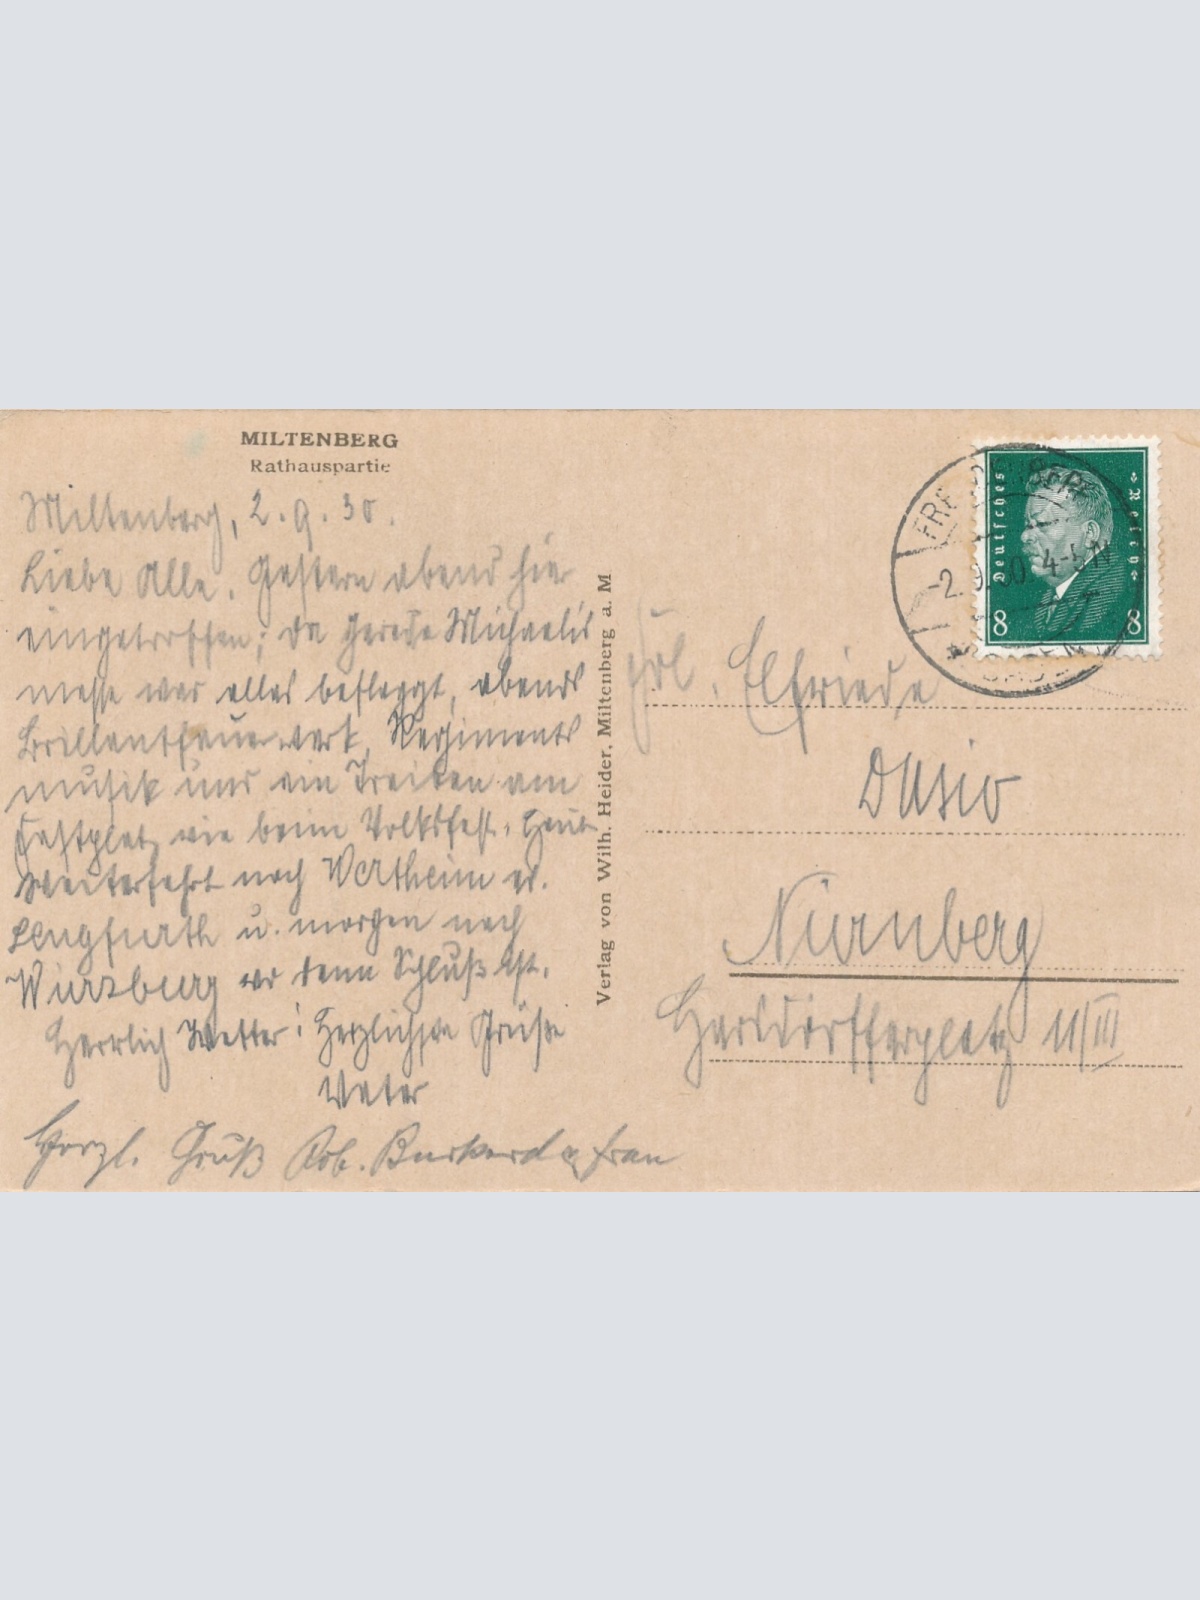 MILTENBERG
Rathauspartie
Miltenberg, 2.9.30.
Liebe Alle. Gestern abend hier
eingetroffen; da gerade Michaelis
messe war alles beflaggt, abends
Brillantfeuerwerk, Regiments
musik und ein Treiben am
Festplatz wie beim Volksfest. Heute
Weiterfahrt nach Wertheim od.
Lengfurth u. morgen nach
Würzburg wo dann Schluß ist.
Herrlich Wetter! Herzlichste Grüße
Vater
Herzl. Gruß Rob. Burkard u Frau
Verlag von Wilh. Heider, Miltenberg a. M
Deutsches Reich
8 8
-2.9.30 4-5 N
Frl. Elfriede
Dasio
Nürnberg
Harsdörfferplatz 11/III